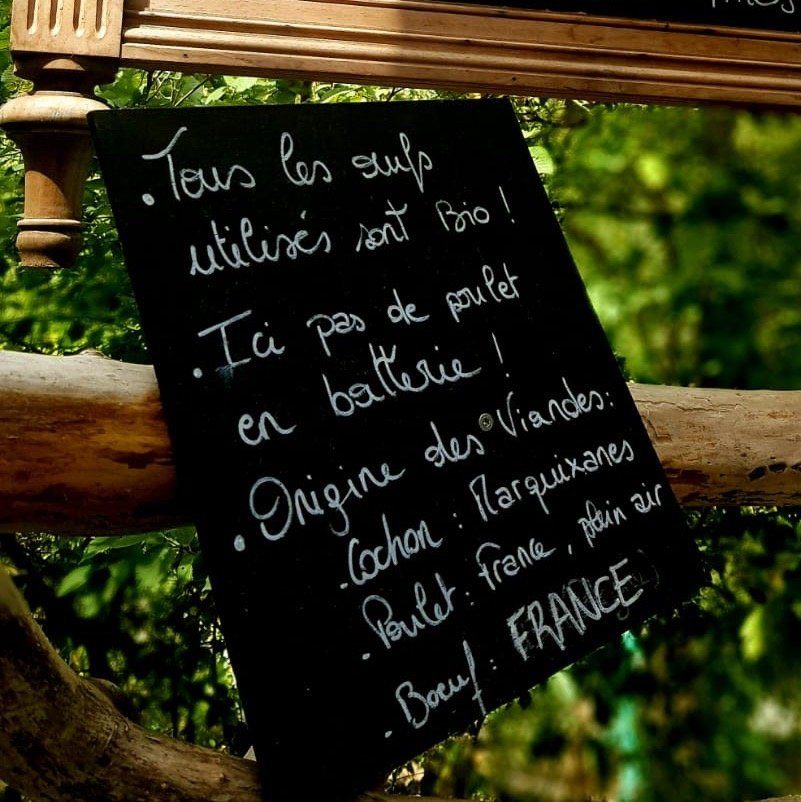 . Tous les œufs
utilisés sont Bio !
. Ici pas de poulet
en batterie !
. Origine des Viandes :
. Cochon : Marquixanes
. Poulet : France, plein air
. Boeuf : FRANCE